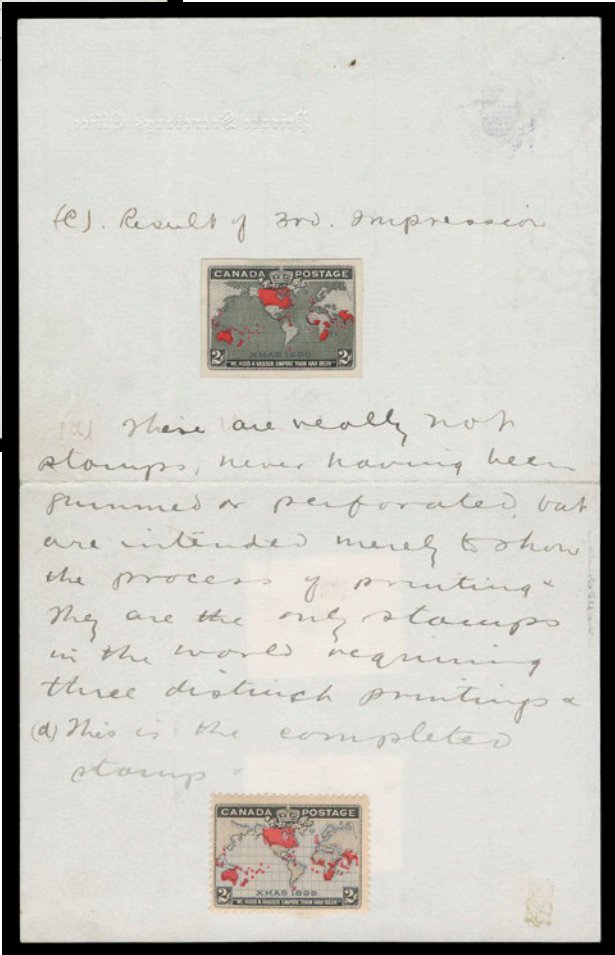 (C). Result of 3rd. Impression
CANADA POSTAGE
2c XMAS 1898 2c
"WE HOLD A VASTER EMPIRE THAN HAS BEEN"
(d) These are really not
stamps, never having been
gummed or perforated, but
are intended merely to show
the process of printing.
They are the only stamps
in the world requiring
three distinct printings.
(d) This is the completed
stamp.
CANADA POSTAGE
XMAS 1898
2c 2c
"WE HOLD A VASTER EMPIRE THAN HAS BEEN"